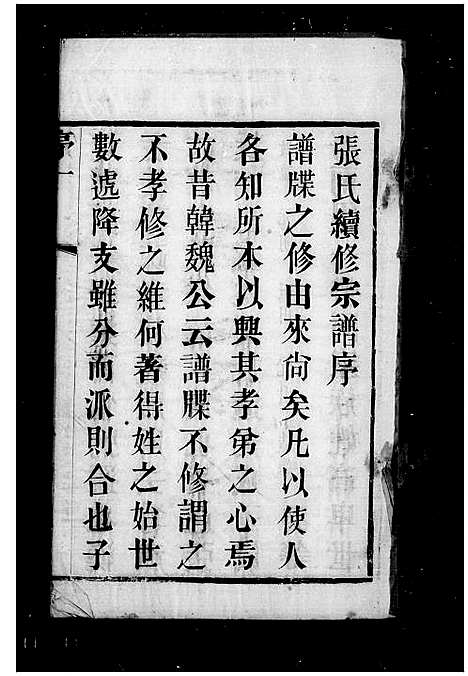 張氏續修宗譜序
譜牒之修由來尙矣凡以使人
各知所本以興其孝弟之心焉
故昔韓魏公云譜牒不修謂之
不孝修之維何著得姓之始世
數遞降支雖分而派則合也子
序一